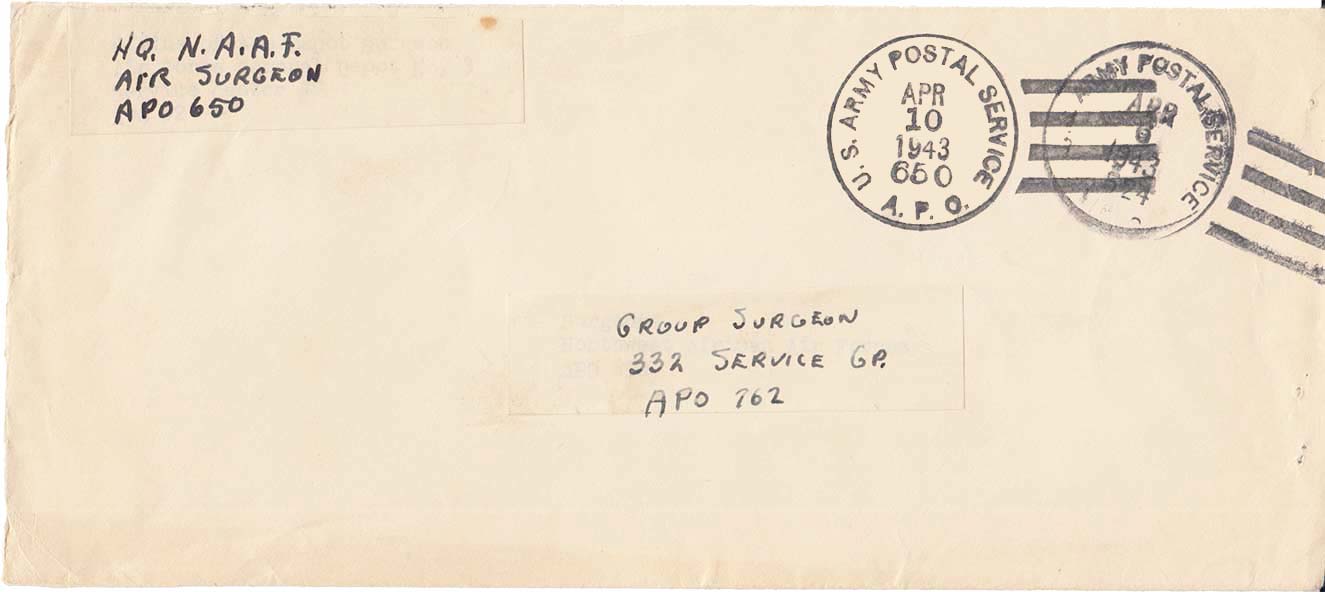 HQ. N.A.A.F.
AIR SURGEON
APO 650
U.S. ARMY POSTAL SERVICE
APR
10
1943
650
A.P.O.
ARMY POSTAL SERVICE
APR
9
1943
524
GROUP SURGEON
332 SERVICE GP.
APO 762